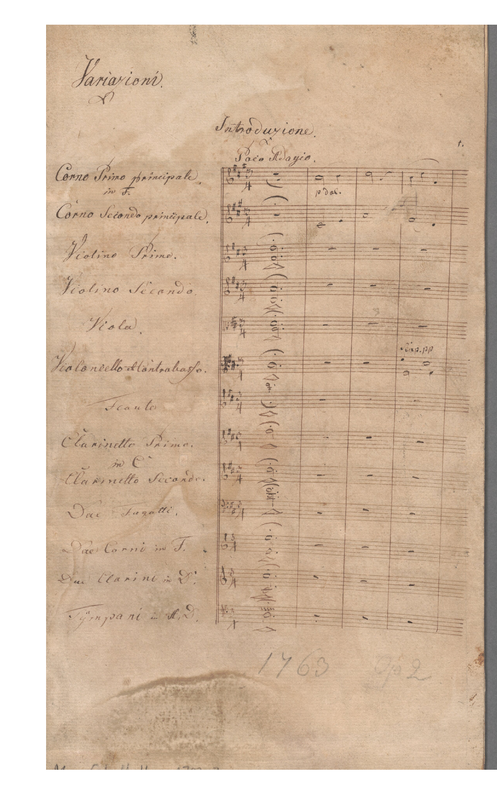 Variazioni.
Introduzione.
1.
Poco Adagio.
Corno Primo principale.
in F.
p dol.
Corno Secondo principale.
Violino Primo.
Violino Secondo
Viola.
pp
Violoncello
Flauto
Clarinetto Primo.
in C
Clarinetto Secondo.
Due Fagotti.
Due Corni in F.
Due Clarini in D.
Tympani in D.
1763